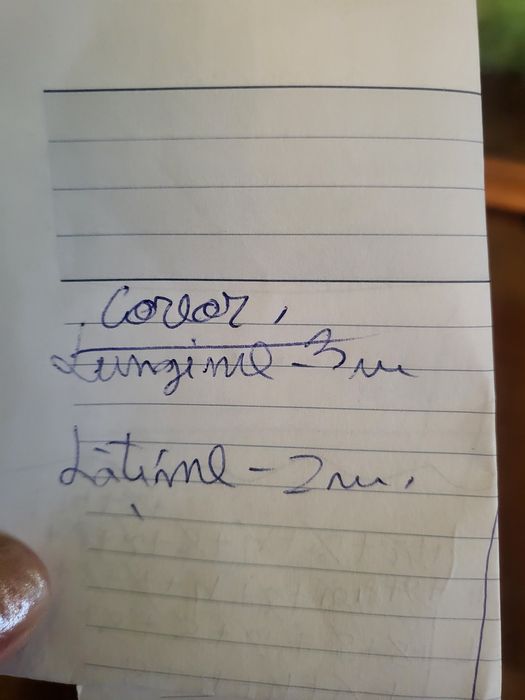 Covor,
Lungime - 3 m
Lățime - 2 m.